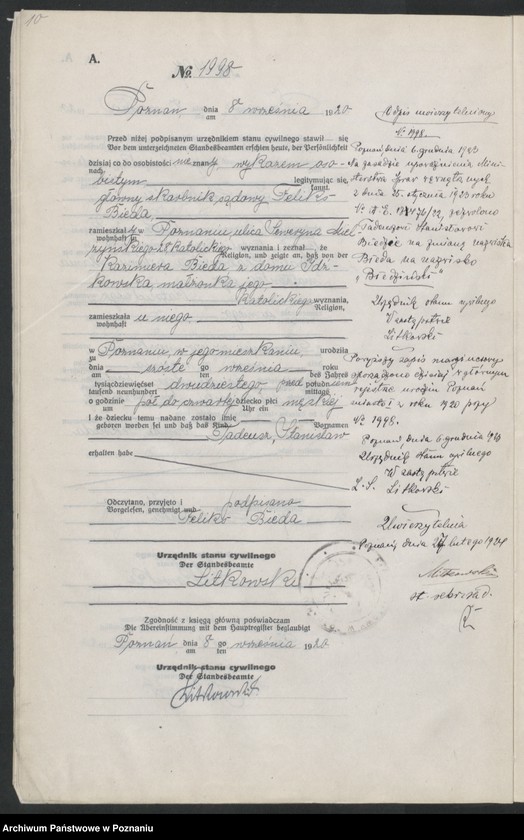 10
A.
No. 1998
Poznań dnia 8 września 1920
am
Przed niżej podpisanym urzędnikiem stanu cywilnego stawił się
Vor dem unterzeichneten Standesbeamten erschien heute, der Persönlichkeit
dzisiaj co do osobistości znany wykazem oso-
nach
bistym legitymując się,
kannt,
główny skarbnik sądowy Feliks
Bieda,
zamieszkały w Poznaniu ulica Seweryna Miel-
wohnhaft in
żyńskiego 21 katolickiego wyznania i zeznał, że
Religion, und zeigte an, daß von der
Kazimiera Bieda z domu Idz-
kowska małżonka jego
katolickiego wyznania,
Religion,
zamieszkała u niego
wohnhaft
w Poznaniu, w jego mieszkaniu, urodziła
zu
dnia szóstego września roku
am ten des Jahres
tysiącdziewięćset dwudziestego przed południem
tausend neunhundert mittags
o godzinie pół do czwartej dziecko płci męskiej
um Uhr ein
i że dziecku temu nadano imię
geboren worden sei und daß das Kind Vornamen
Tadeusz, Stanisław
erhalten habe
Odczytano, przyjęto i podpisano
Vorgelesen, genehmigt und
Feliks Bieda
Urzędnik stanu cywilnego
Der Standesbeamte
Litkowski
Zgodność z księgą główną poświadczam
Die Übereinstimmung mit dem Hauptregister beglaubigt
Poznań dnia 8 go września 1920
am ten
Urzędnik stanu cywilnego
Der Standesbeamte
Litkowski
Odpis uwierzytelniony
No 1998.
Poznań, dnia 6. grudnia 1923
Na zasadzie upoważnienia Mini-
sterstwa Spraw
z dnia 25. stycznia 1923 roku
zezwolono
Tadeuszowi Stanisławowi
Biedzie na zmianę nazwiska
Bieda na nazwisko
"Biedziński"
Urzędnik stanu cywilnego
W zastępstwie
Litkowski
Powyższy zapis
dzisiaj w głównym
rejestrze urodzin Poznań
miasto I w roku 1920 przy
No 1998.
Poznań, dnia 6 grudnia 1923
Urzędnik stanu cywilnego
W zastępstwie
L. S. Litkowski
Uwierzytelnia
Poznań, dnia 27 lutego 1924
st. sekr. sąd.
Archiwum Państwowe w Poznaniu